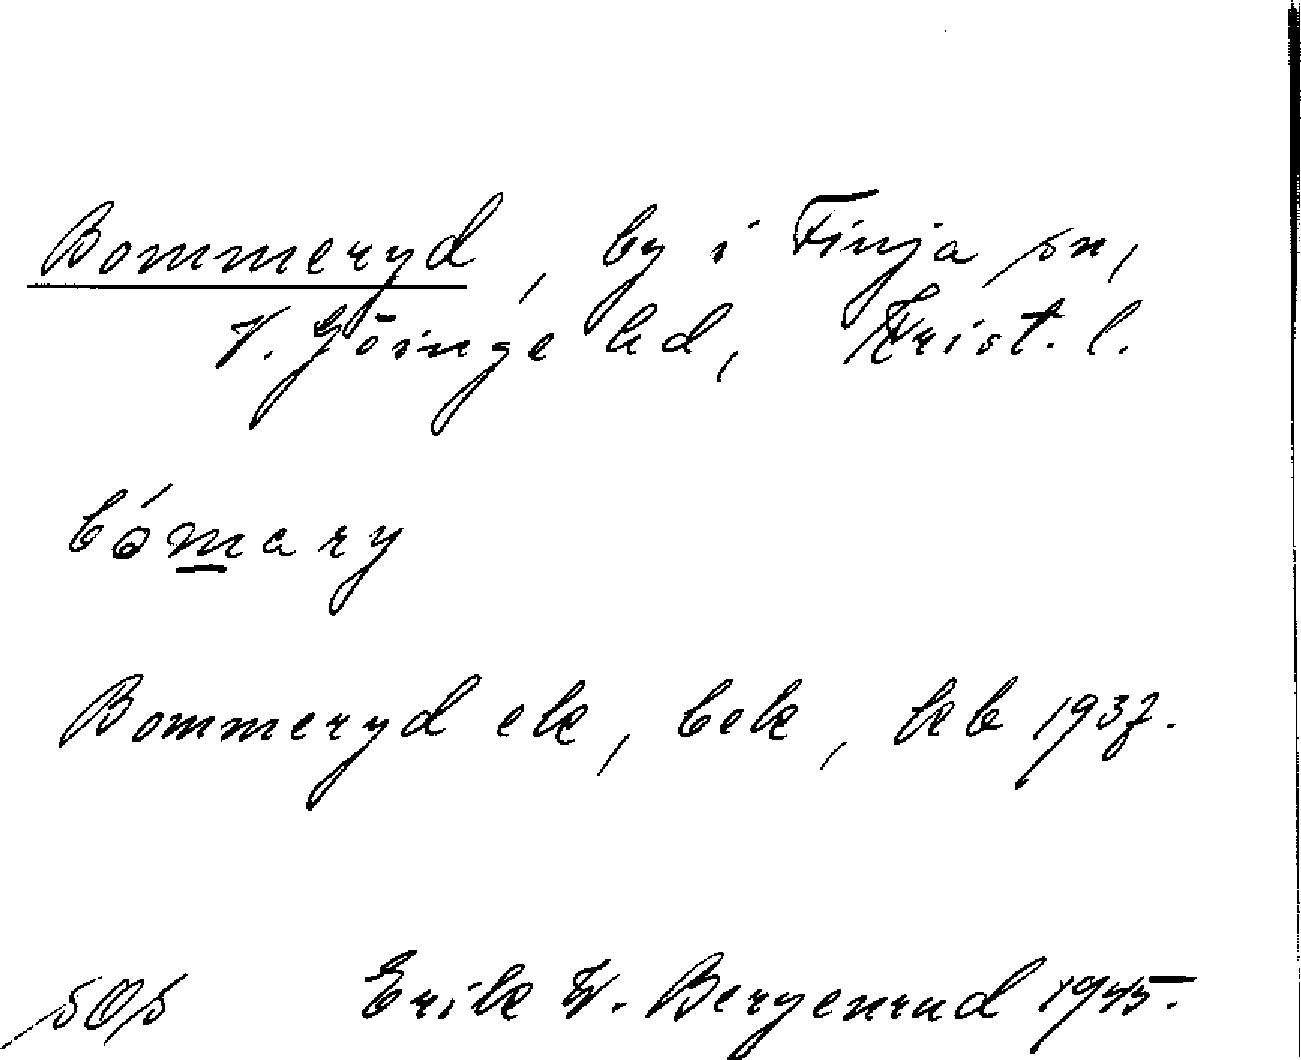 Bommeryd, by i Finja sn,
V. Göinge hd, Krist. l.
bómary
Bommeryd ek, bek, hkb 1937.
SOS Erik W. Bergenrud 1945.